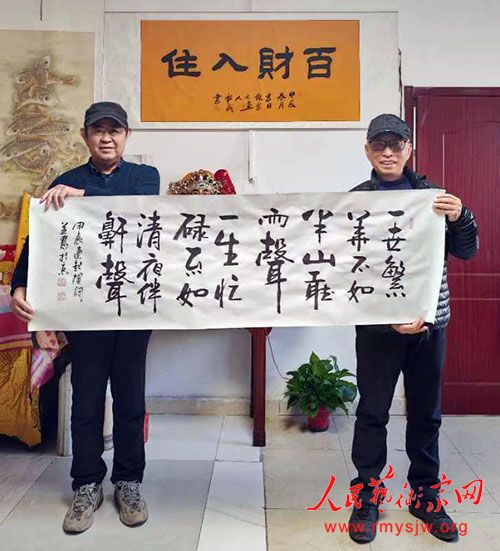 百財入住
甲辰
一世繁
華不如
半山聽
雨聲
一生忙
碌不如
清夜伴
鼾聲
甲辰
人民藝术家网
www.rmysjw.org